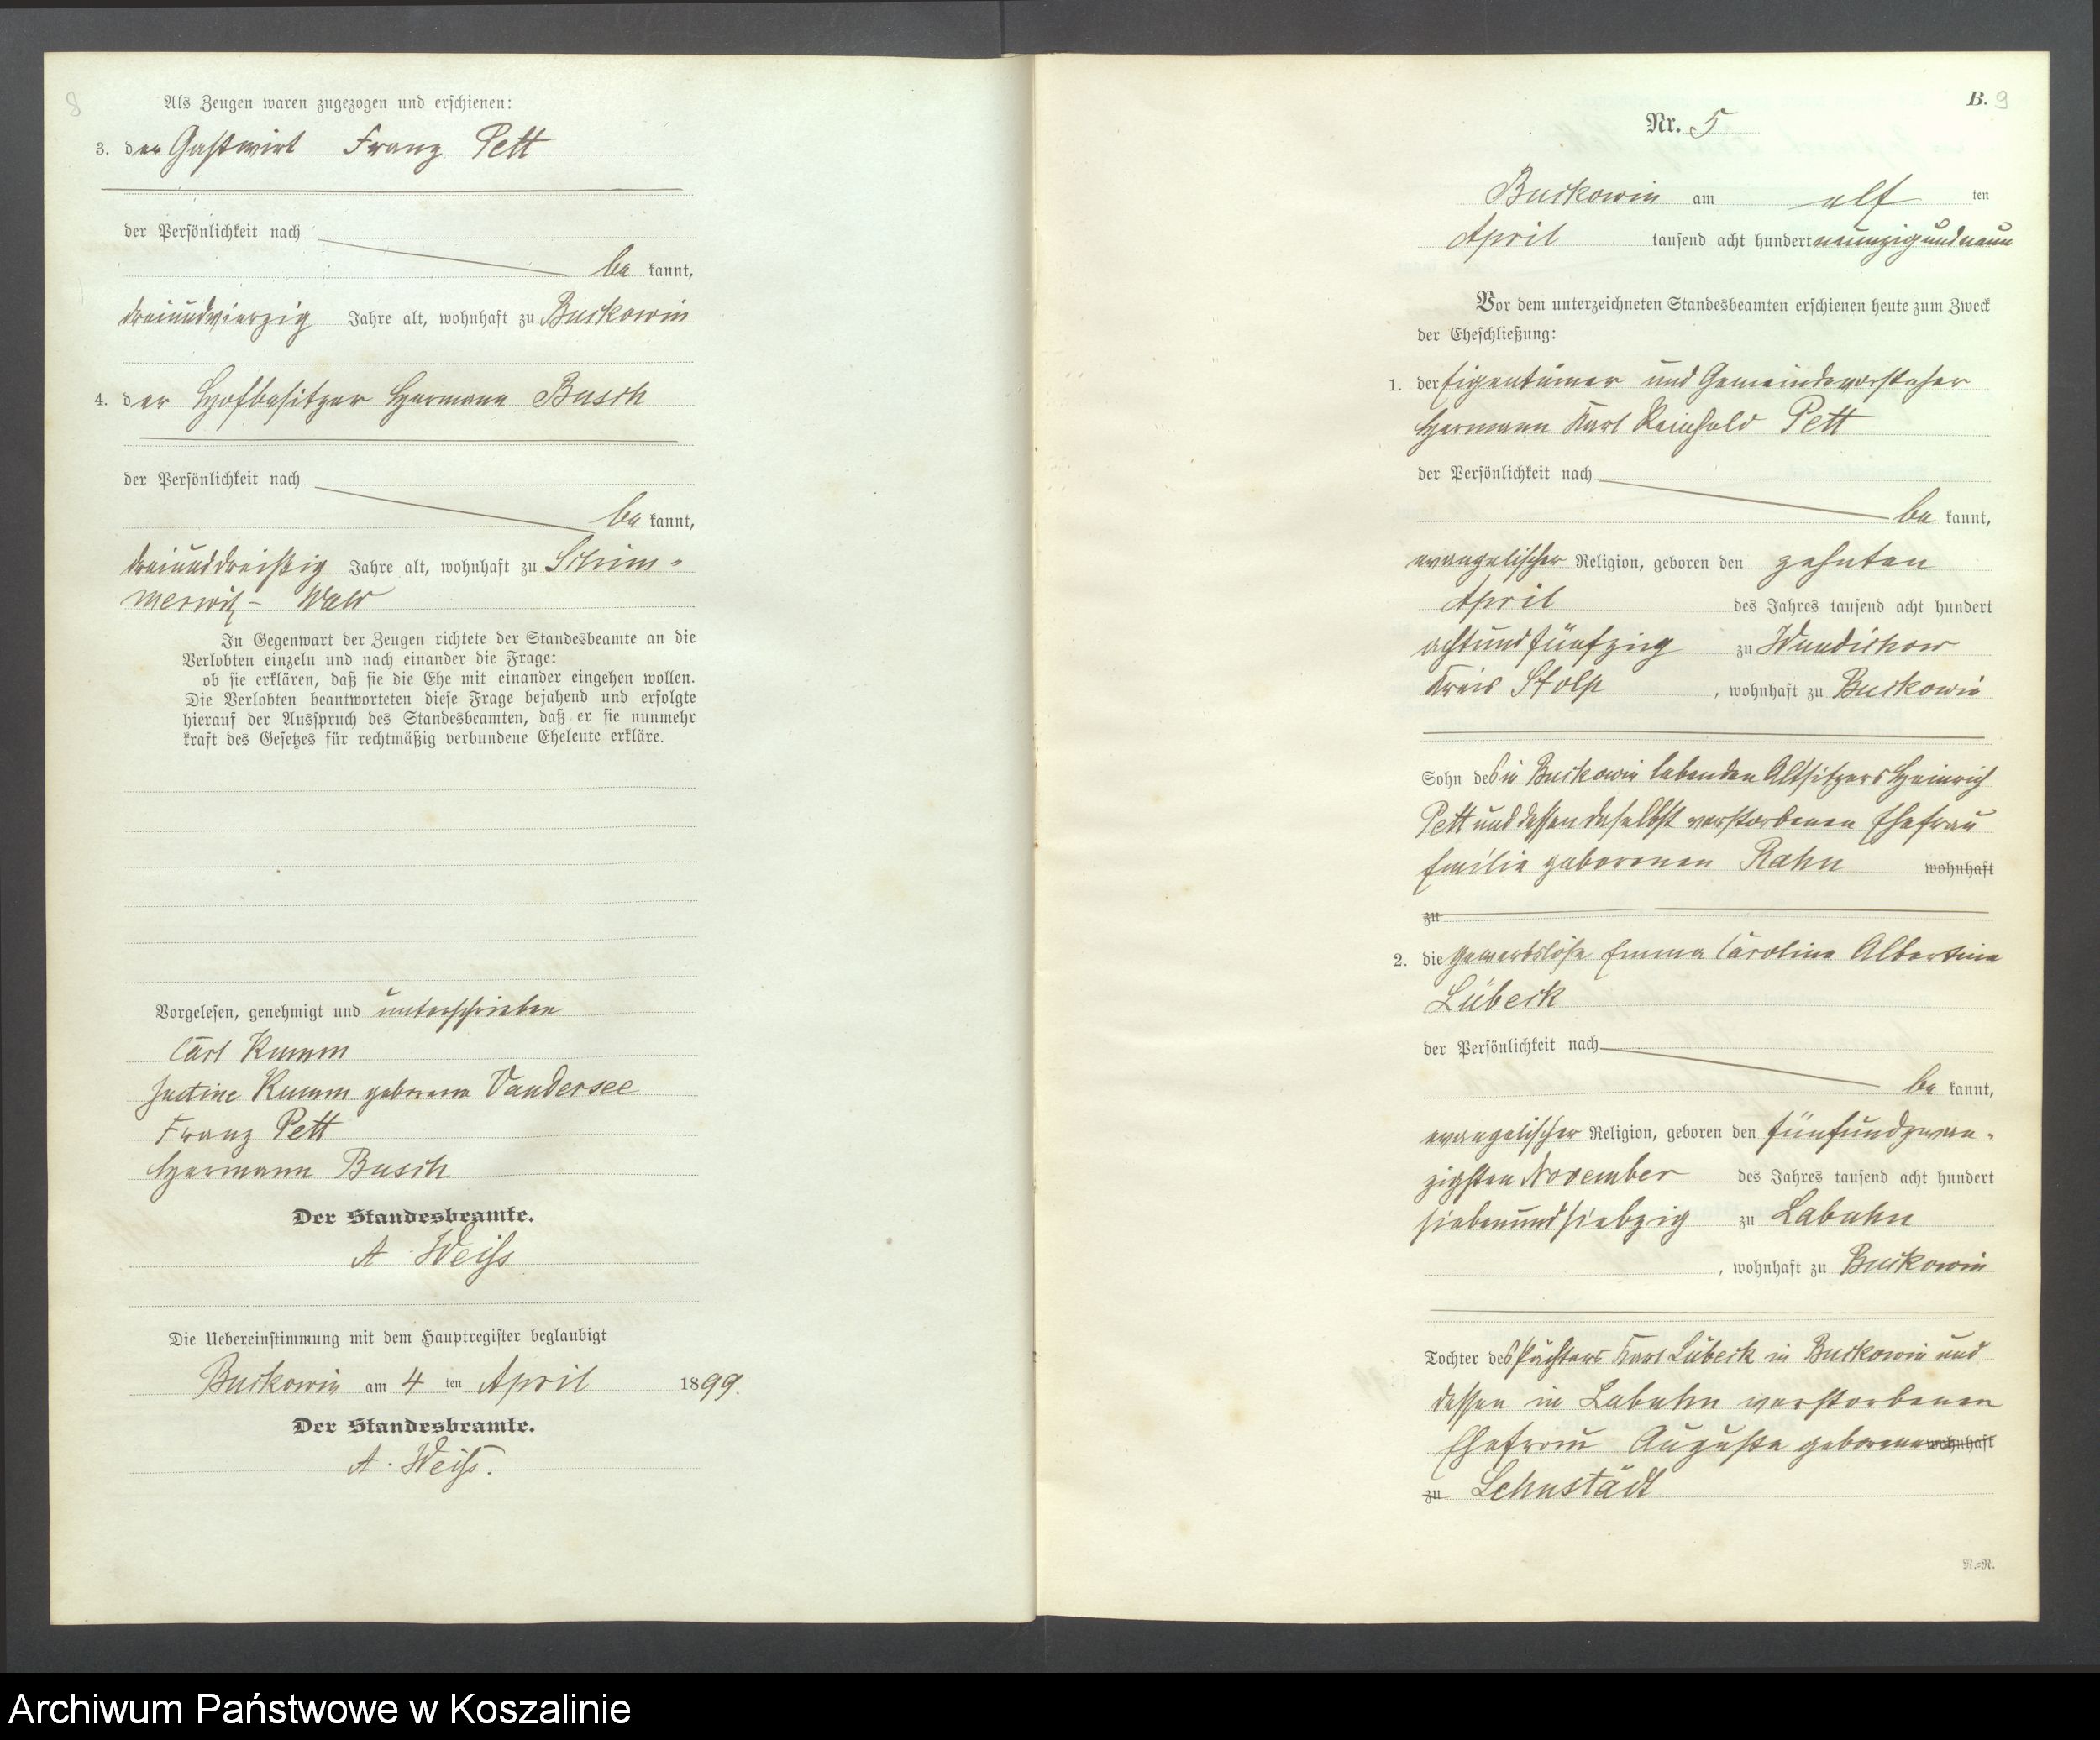 8
Als Zeugen waren zugezogen und erschienen:
3. der Gastwirt Franz Pett
der Persönlichkeit nach
be kannt,
dreiundvierzig Jahre alt, wohnhaft zu Buckowin
4. der Hofbesitzer Hermann Busch
der Persönlichkeit nach
be kannt,
dreiunddreißig Jahre alt, wohnhaft zu Schim-
merwitz - Wald
In Gegenwart der Zeugen richtete der Standesbeamte an die
Verlobten einzeln und nach einander die Frage:
ob sie erklären, daß sie die Ehe mit einander eingehen wollen.
Die Verlobten beantworteten diese Frage bejahend und erfolgte
hierauf der Ausspruch des Standesbeamten, daß er sie nunmehr
kraft des Gesetzes für rechtmäßig verbundene Eheleute erkläre.
Vorgelesen, genehmigt und unterschrieben
Carl Kumm
Justine Kumm geborene Vandersee
Franz Pett
Hermann Busch
Der Standesbeamte.
A. Weiß
Die Uebereinstimmung mit dem Hauptregister beglaubigt
Buckowin am 4 ten April 1899.
Der Standesbeamte.
A. Weiß.
B. 9
Nr. 5
Buckowin am elf ten
April tausend acht hundert neunzig und neun
Vor dem unterzeichneten Standesbeamten erschienen heute zum Zweck
der Eheschließung:
1. der Eigentümer und Gemeindevorsteher
Hermann Karl Reinhold Pett
der Persönlichkeit nach
be kannt,
evangelischer Religion, geboren den zehnten
April des Jahres tausend acht hundert
achtundfünfzig zu Wundichow
Kreis Stolp, wohnhaft zu Buckowin
Sohn des in Buckowin lebenden Altsitzers Heinrich
Pett und dessen daselbst verstorbenen Ehefrau
Emilie geborenen Rahn wohnhaft
zu
2. die gewerbslose Emma Caroline Albertine
Lübeck
der Persönlichkeit nach
be kannt,
evangelischer Religion, geboren den fünfundzwan-
zigsten November des Jahres tausend acht hundert
siebenundsiebzig zu Labuhn
, wohnhaft zu Buckowin
Tochter des Pächters Karl Lübeck in Buckowin und
dessen in Labuhn verstorbenen
Ehefrau Auguste geborene wohnhaft
zu Lehnstädt
R.-R.
Archiwum Państwowe w Koszalinie